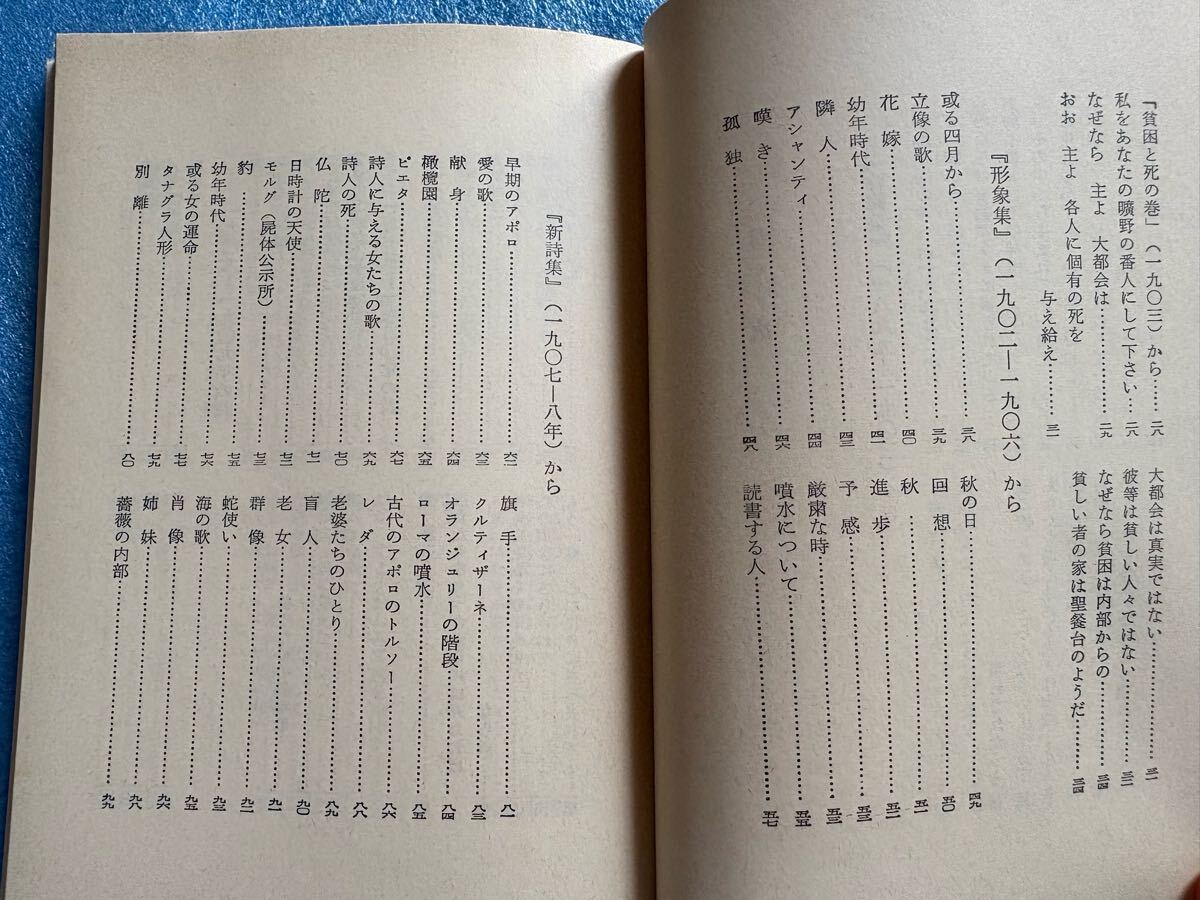 『貧困と死の巻』（一九〇三）から……二八
私をあなたの曠野の番人にして下さい…二八
なぜなら　主よ　大都会は…………二九
おお　主よ　各人に個有の死を
与え給え……三一
大都会は真実ではない……………三一
彼等は貧しい人々ではない…………三二
なぜなら貧困は内部からの…………三四
貧しい者の家は聖餐台のようだ……三四
『形象集』（一九〇二―一九〇六）から
或る四月から……………三八
立像の歌……………三九
花嫁……………四〇
幼年時代……………四一
隣人……………四三
アシャンティ……………四四
嘆き……………四六
孤独……………四八
秋の日……………四九
回想……………五〇
秋……………五一
進歩……………五二
予感……………五三
厳粛な時……………五三
噴水について……………五五
読書する人……………五七
『新詩集』（一九〇七―八年）から
早期のアポロ……………六二
愛の歌……………六三
献身……………六四
橄欖園……………六五
ピエタ……………六七
詩人に与える女たちの歌……………六九
詩人の死……………七〇
仏陀……………七一
日時計の天使……………七二
モルグ（屍体公示所）……………七三
豹……………七五
幼年時代……………七六
或る女の運命……………七七
タナグラ人形……………七九
別離……………八〇
旗手……………八一
クルティザーネ……………八三
オランジュリーの階段……………八四
ローマの噴水……………八五
古代のアポロのトルソー……………八六
レダ……………八八
老婆たちのひとり……………八九
盲人……………九〇
老女……………九一
群像……………九二
蛇使い……………九三
海の歌……………九五
肖像……………九六
姉妹……………九八
薔薇の内部……………九九